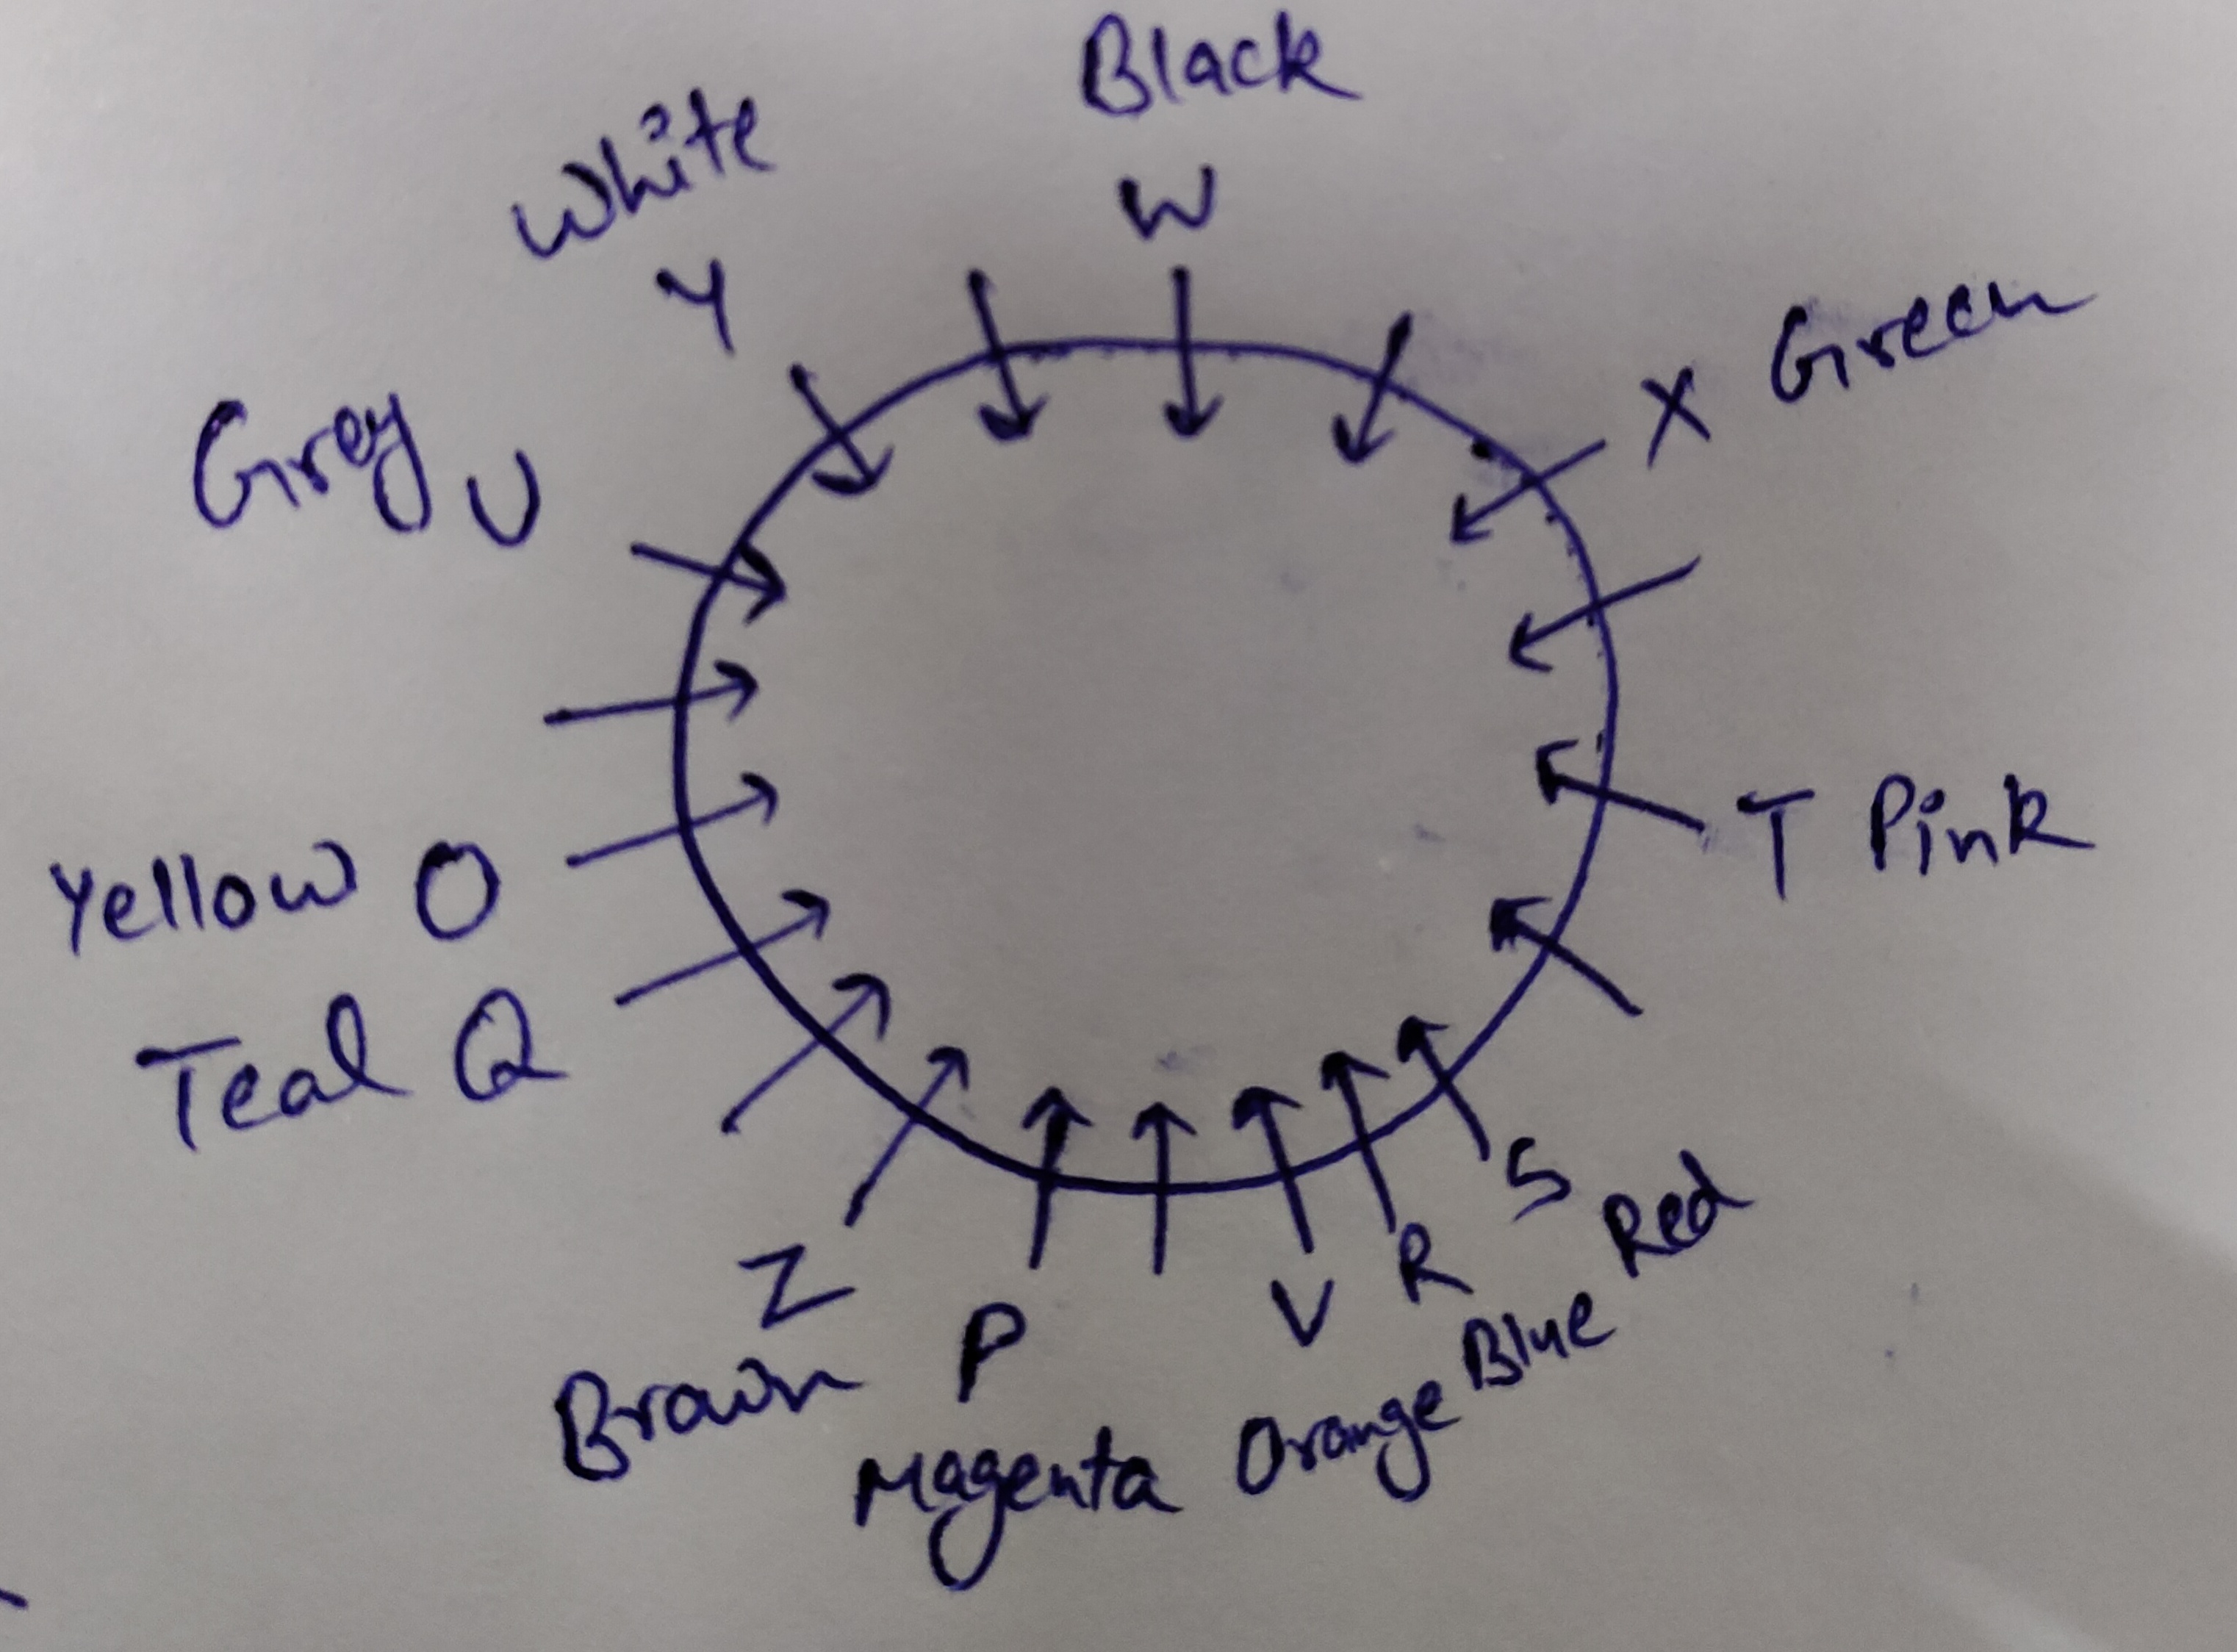 Black
W
White
Y
X Green
Grey U
T Pink
Yellow O
Teal Q
S Red
R Blue
V Orange
Z Brown
P Magenta